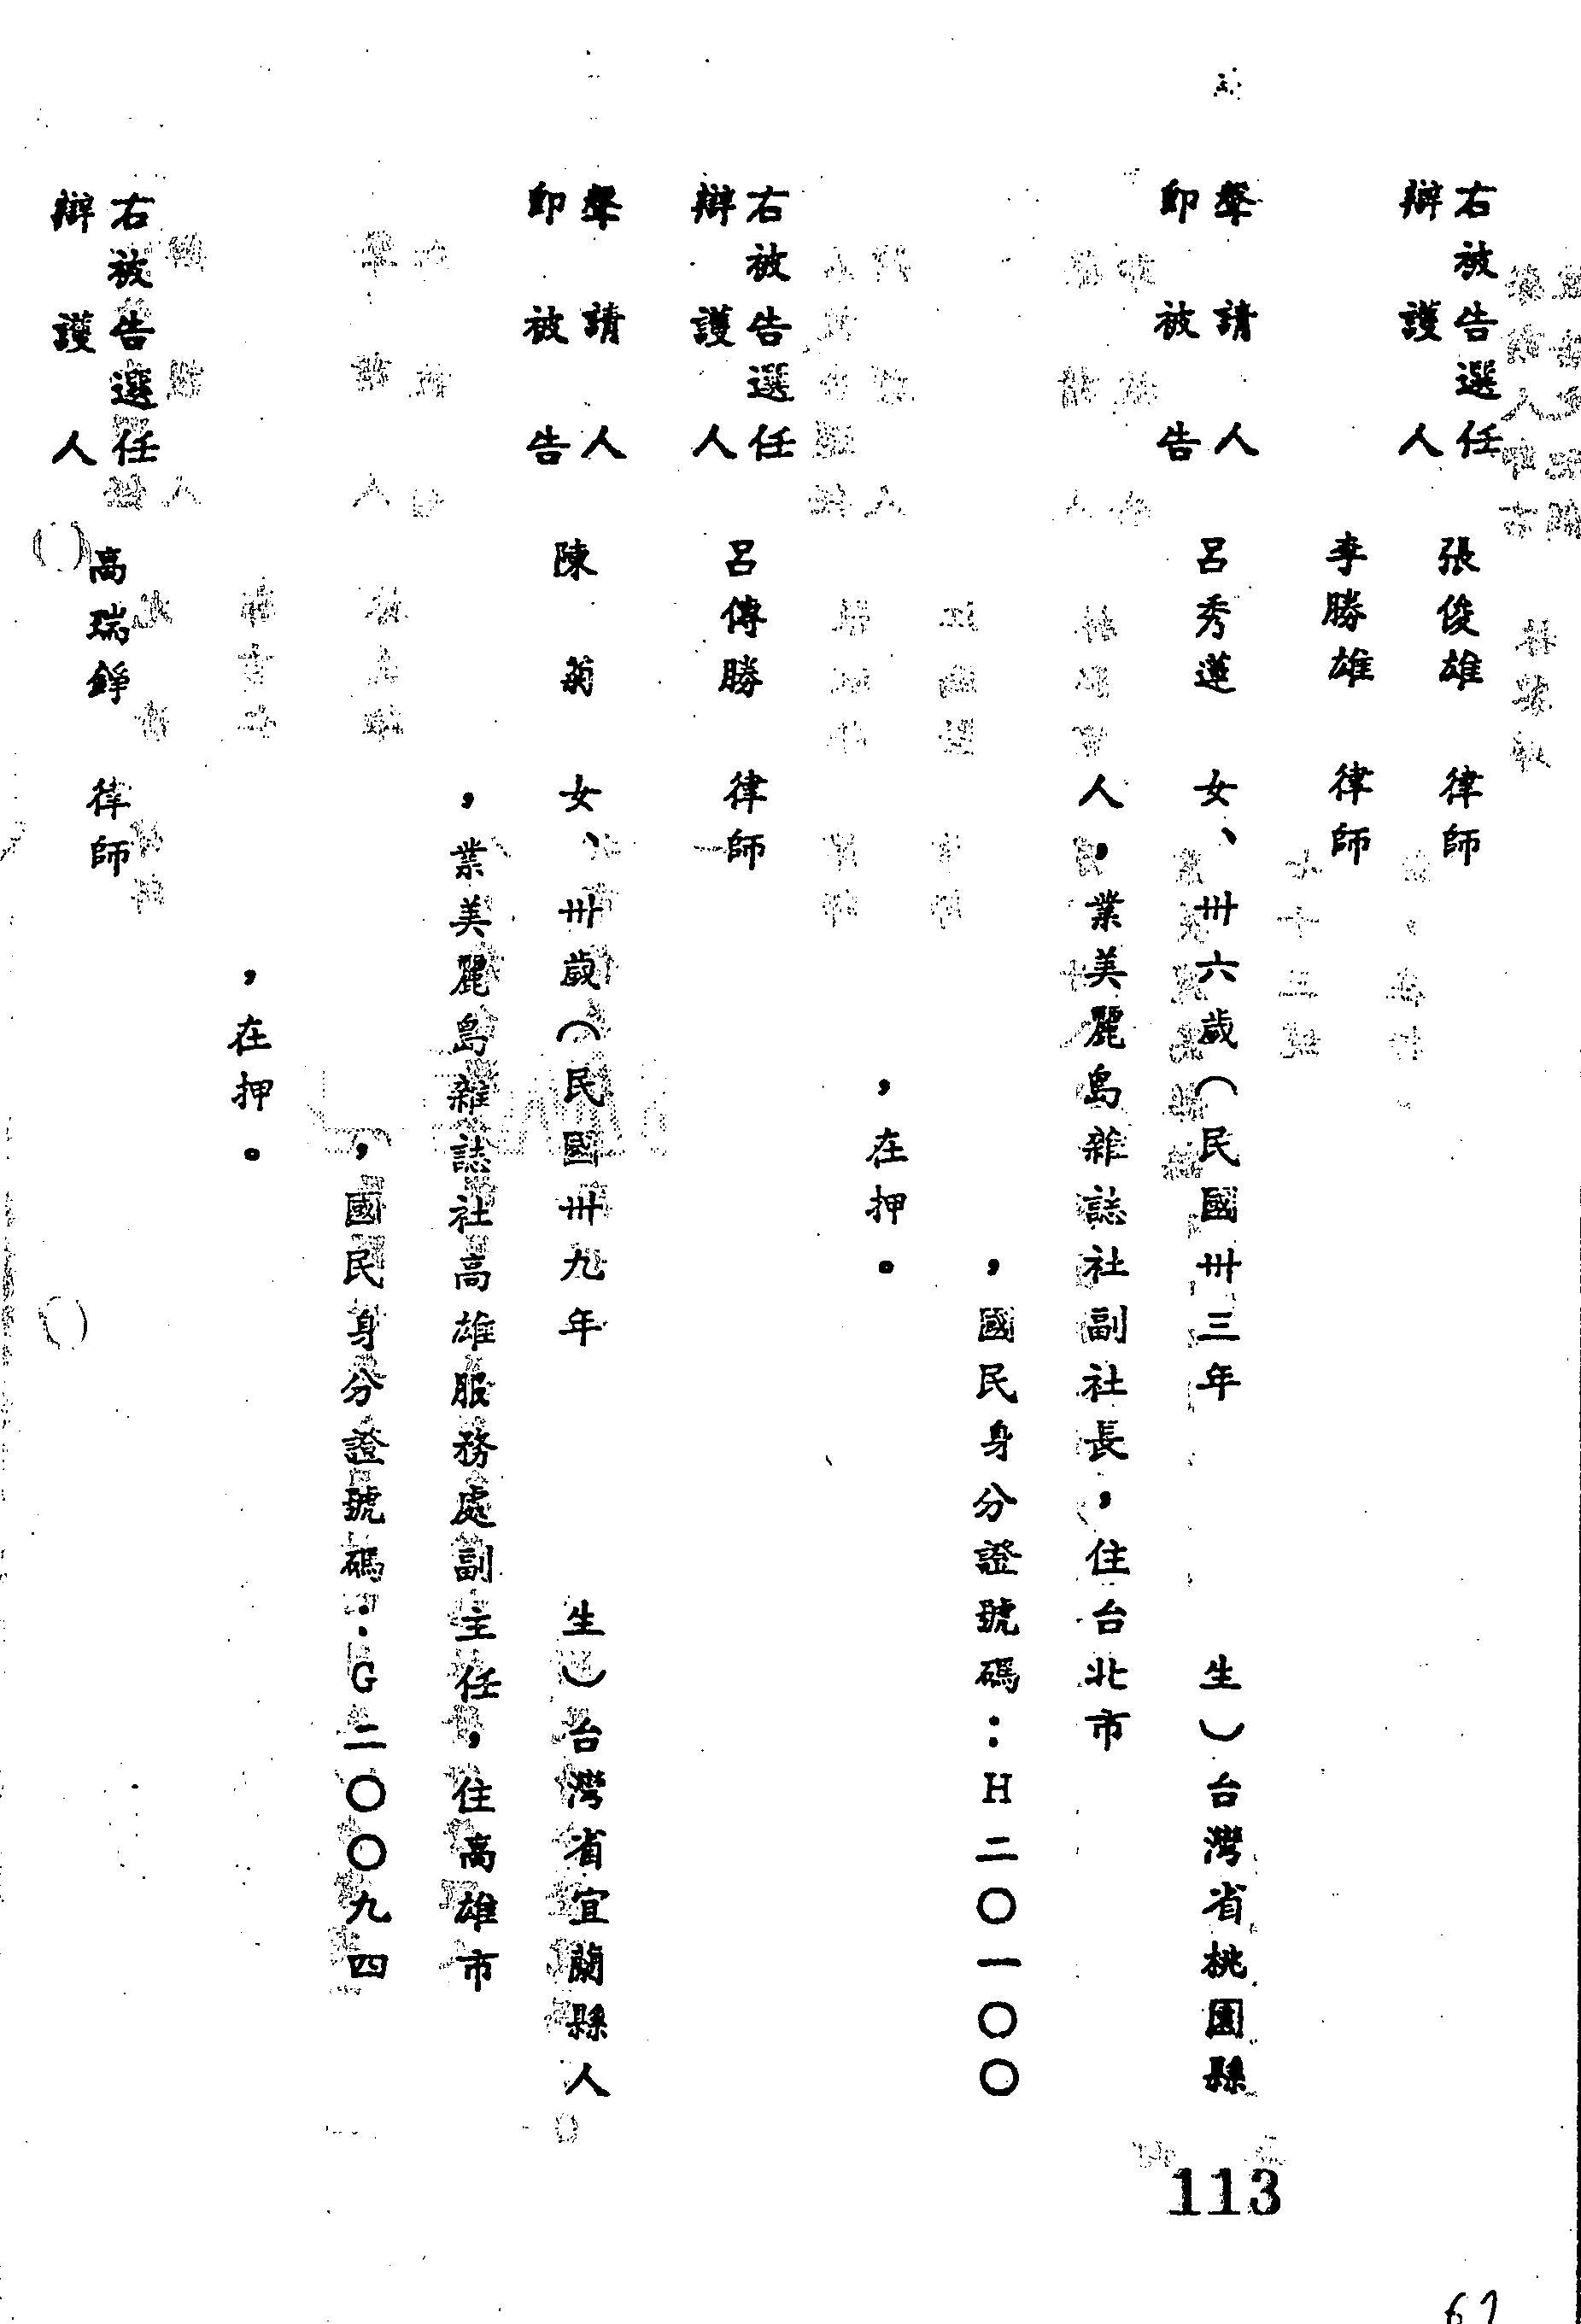 右被告選任
辯護人
張俊雄　律師
李勝雄　律師
聲請人
即被告
呂秀蓮　女、卅六歲（民國卅三年　生）台灣省桃園縣
人，業美麗島雜誌社副社長，住台北市
，國民身分證號碼：H二〇一〇〇
，在押。
右被告選任
辯護人
呂傳勝　律師
聲請人
即被告
陳菊　女、卅歲（民國卅九年　生）台灣省宜蘭縣人
，業美麗島雜誌社高雄服務處副主任，住高雄市
，國民身分證號碼：G二〇〇九四
，在押。
右被告選任
辯護人
高瑞錚　律師
113